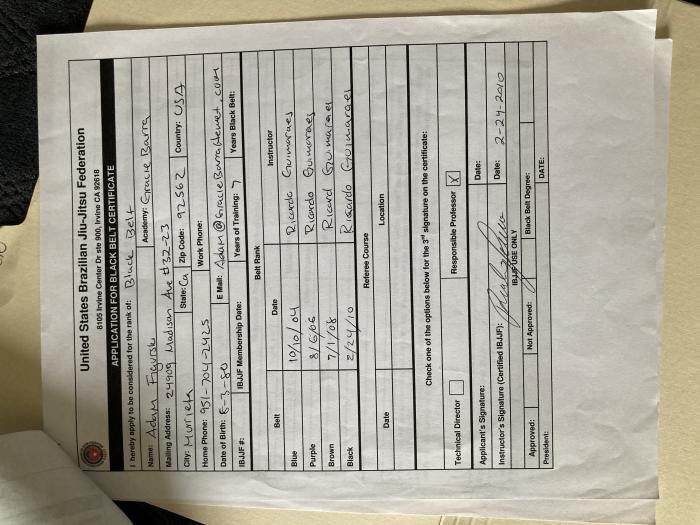 United States Brazilian Jiu-Jitsu Federation
8105 Irvine Center Dr ste 900, Irvine CA 92618
APPLICATION FOR BLACK BELT CERTIFICATE
I hereby apply to be considered for the rank of: Black Belt
Name: Adam Academy: Gracie Barra
Mailing Address: 24909 Madison Ave #32-23
City: Murieta State: Ca Zip Code: 92562 Country: USA
Home Phone: 951-704-2425 Work Phone:
Date of Birth: 8-3-80 E Mail: Adam@GracieBarraHemet.com
IBJJF #: IBJJF Membership Date: Years of Training: 7 Years Black Belt:
Belt Rank
Belt Date Instructor
Blue 10/10/04 Ricardo Guimaraes
Purple 8/6/06 Ricardo Guimaraes
Brown 7/1/08 Ricard Guimaraes
Black 2/24/10 Ricardo Guimaraes
Referee Course
Date Location
Check one of the options below for the 3rd signature on the certificate:
Technical Director Responsible Professor X
Applicant's Signature: Date:
Instructor's Signature (Certified IBJJF): Date: 2-24-2010
IBJJF USE ONLY
Approved: Not Approved: Black Belt Degree:
President: DATE: